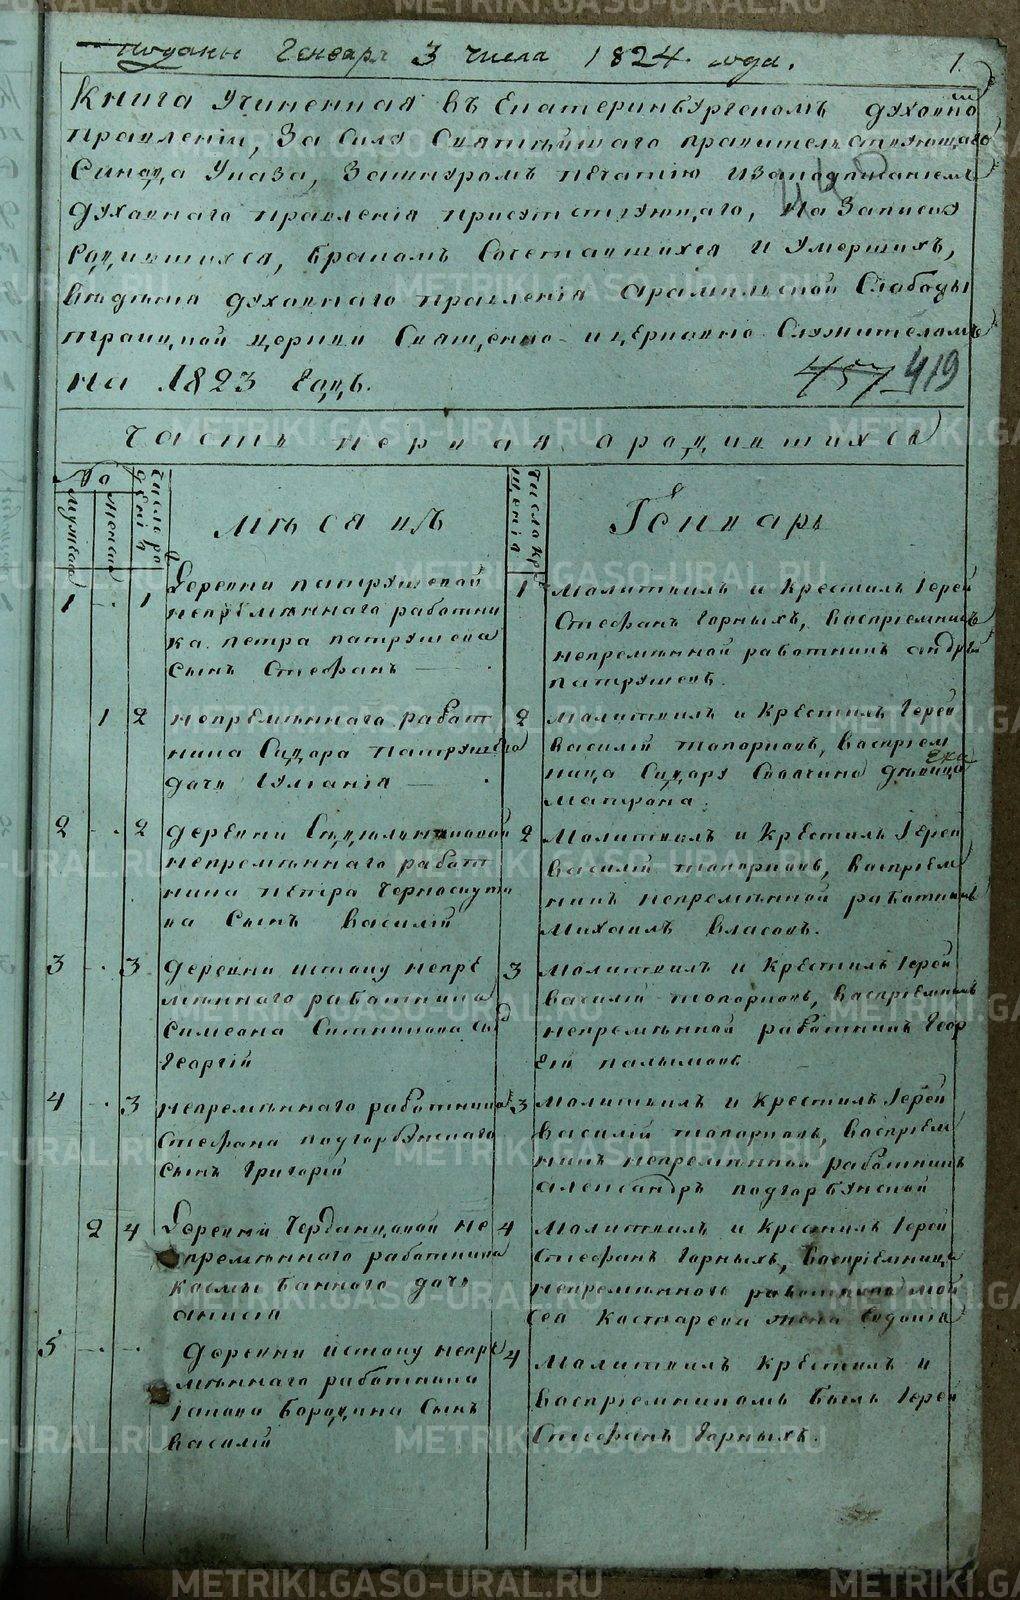 поданы Генваря 3 числа 1824 года.
1.
Книга Учиненная въ Екатеринбургскомъ духовно
правленіи, За Силу Святѣйшаго правительствующаго
Синода Указа, Зашнуромъ печатію изаподписаніемъ
духовнаго правленія присутствующаго, На Записку
родившихся, бракомъ Сочетавшихся и Умершихъ,
вѣденія духовнаго правленія арамильской Слободы
троицкой церкви Священно- ицерковно Служителямъ
На 1823 Годъ.
457 419
часть первая ородившихся
№
мужеска
женска
число рожденія
мѣсяцъ
число крещенія
Генварь
1 - 1
деревни патрушевой
непремѣннаго работни
ка петра патрушева
сынъ Стефанъ
1
молитвилъ и крестилъ Іерей
Стефанъ Горныхъ, воспріемникъ
непремѣнной работникъ андрей
патрушевъ.
1 2
непремѣннаго работ
ника Сидора патрушева
дочь
2
молитвилъ и крестилъ Іерей
василій топорковъ, воспріем
ница Сидору девица
матрона.
2 - 2
деревни
непремѣннаго работ
ника петра Черноскуто
ва Сынъ василій
2
молитвилъ и крестилъ Іерей
василій топорковъ, воспріем
никъ непремѣнной работникъ
михаилъ власовъ.
3 - 3
деревни истоку непре
мѣннаго работника
Симеона Ситникова сы
Георгій
3
молитвилъ и крестилъ Іерей
василій топорковъ, воспріемникъ
непремѣнной работникъ Геор
гій палымовъ
4 - 3
непремѣннаго работника
Стефана подгорбунскаго
сынъ григорій
3
молитвилъ и крестилъ Іерей
василій топорковъ, воспріем
никъ непремѣнной работникъ
александръ подгорбунской
2 4
деревни Бердинцовой не
премѣннаго работника
козмы банного дочь
анисія
4
молитвилъ и крестилъ Іерей
Стефанъ Горныхъ, воспріемница
непремѣннаго работника мой
сея Костарева жена Евдокія
5 - -
деревни истоку непре
мѣннаго работника
іакова бородина Сынъ
василій
4
молитвилъ крестилъ и
воспріемникомъ былъ Іерей
Стефанъ Горныхъ.
METRIKI.GASO-URAL.RU